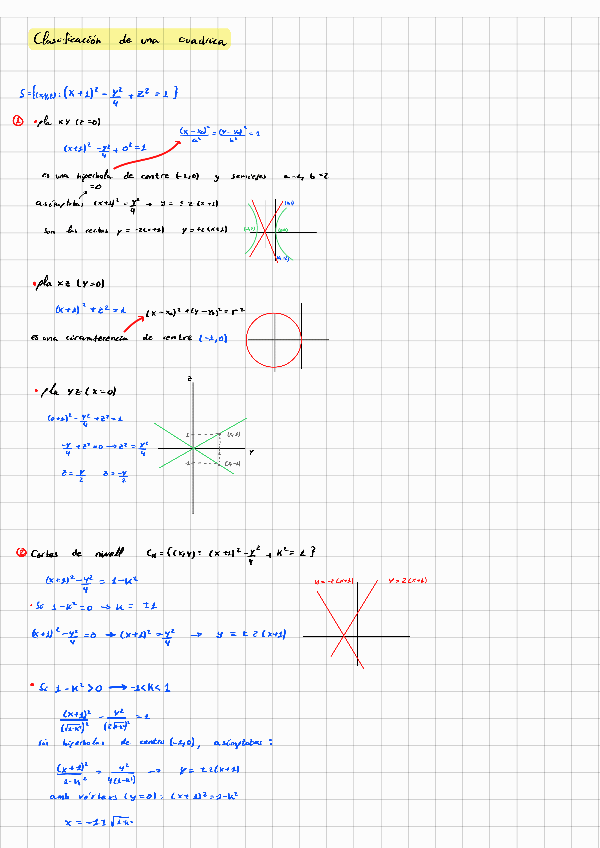 Clasificación de una cuadrica
S={(x,y,z): (x+1)² - y²/4 + z² = 1}
① • pla xy (z=0)
(x-x₀)²/a² = (y-y₀)²/b² = 1
(x+1)² - y²/4 + 0² = 1
es una hiperbola de centre (-1,0) y semiejes a=1, b=2
=0
asímptotas (x+1)² - y²/4 → y = ±2(x+1)
son las rectas y=-2(x+1) y=+2(x+1)
• pla xz (y=0)
(x+1)² + z² = 1 (x-x₀)² + (y-y₀)² = r²
es una circumferencia de centre (-1,0)
• pla yz (x=0)
z
(0+1)² - y²/4 + z² = 1
1
(2,1)
-y²/4 + z² = 0 → z² = y²/4
y
-1
(2,-1)
z = y/2 z = -y/2
② Cortes de nivell Cₖ={(x,y): (x+1)² - y²/4 + k² = 1}
(x+1)² - y²/4 = 1-k²
y=-2(x+1) y=2(x+1)
• Si 1-k²=0 → k = ±1
(x+1)² - y²/4 = 0 → (x+1)² = y²/4 → y = ±2(x+1)
• Si 1-k²>0 → -1<k<1
(x+1)²/(√1-k²)² - y²/(2√1-k²)² = 1
son hiperbolas de centro (-1,0), asímptotas:
(x+1)²/1-k² = y²/4(1-k²) → y = ±2(x+1)
amb vértexs (y=0): (x+1)² = 1-k²
x = -1±√1-k²